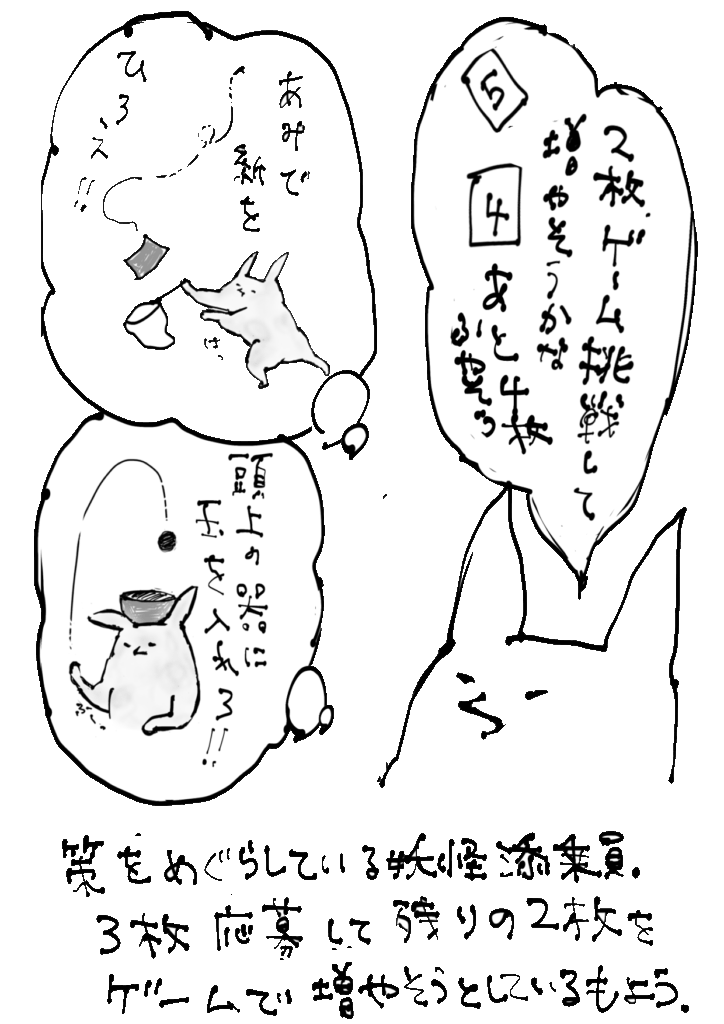 2枚ゲーム挑戦して
増やそうかな
5
4
あと4枚
ふやそう
あみで
紙を
ひろえ!!
はっ
頭上の器に
玉を入れろ!!
策をめぐらしている妖怪添乗員.
3枚応募して残りの2枚を
ゲームで増やそうとしているもよう.